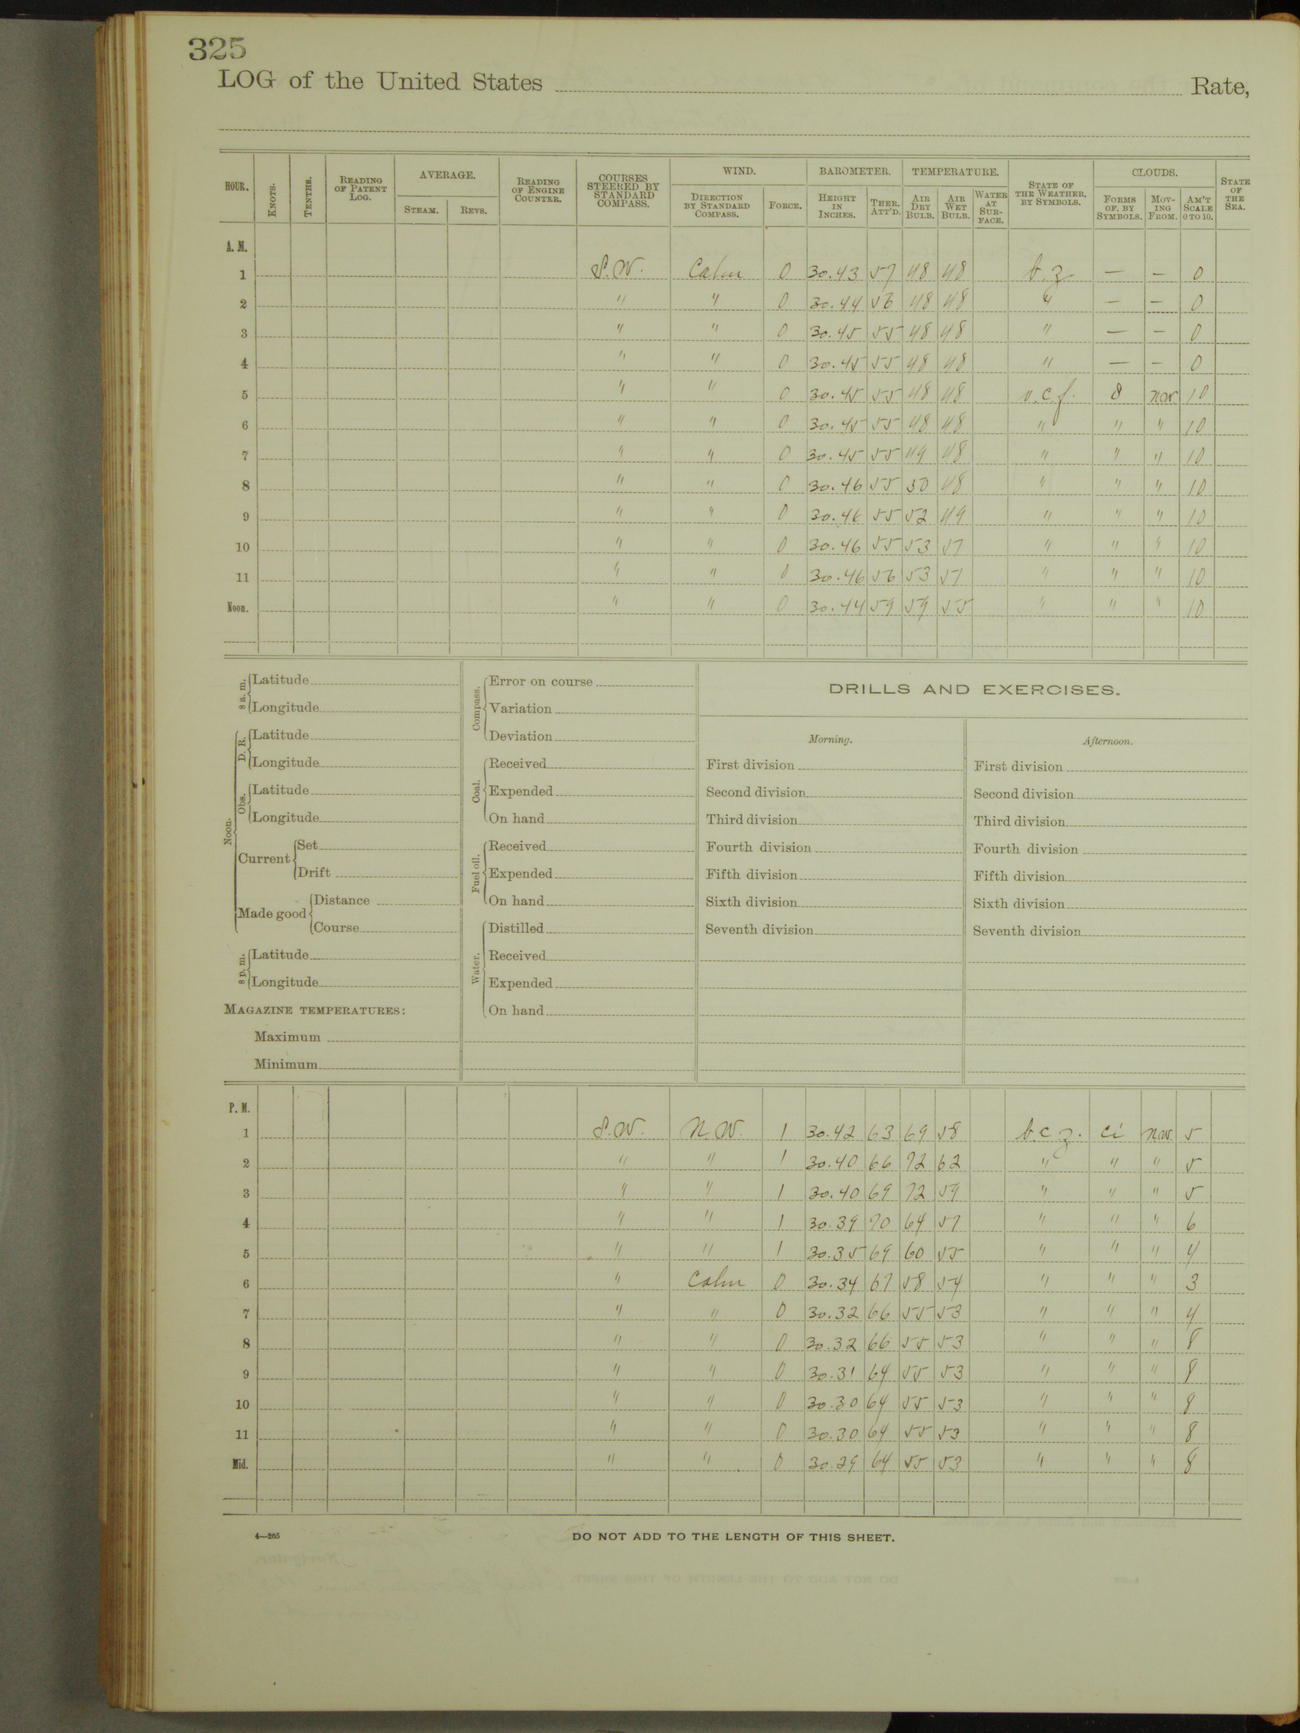 325
LOG of the United States Rate,
HOUR. KNOTS. TENTHS. READING OF PATENT LOG. AVERAGE. STEAM. REVS. READING OF ENGINE COUNTER. COURSES STEERED BY STANDARD COMPASS. WIND. DIRECTION BY STANDARD COMPASS. FORCE. BAROMETER. HEIGHT IN INCHES. THER. ATT'D. TEMPERATURE. AIR DRY BULB. AIR WET BULB. WATER AT SURFACE. STATE OF THE WEATHER, BY SYMBOLS. CLOUDS. FORMS OF, BY SYMBOLS. MOVING FROM. AM'T SCALE 0 TO 10. STATE OF THE SEA.
A. M.
1 S.W. Calm 0 30.43 57 48 48 b.z — — 0
2 " " 0 30.44 56 48 48 " — — 0
3 " " 0 30.45 55 48 48 " — — 0
4 " " 0 30.45 55 48 48 " — — 0
5 " " 0 30.45 55 48 48 o.c.f. 8 nor 10
6 " " 0 30.45 55 48 48 " " " 10
7 " " 0 30.45 55 49 48 " " " 10
8 " " 0 30.46 55 50 48 " " " 10
9 " " 0 30.46 55 52 49 " " " 10
10 " " 0 30.46 55 53 51 " " " 10
11 " " 0 30.46 56 53 51 " " " 10
Noon. " " 0 30.44 59 59 55 " " " 10
8 a. m. Latitude
Longitude
Noon. D. R. Latitude
Longitude
Obs. Latitude
Longitude
Current Set
Drift
Made good Distance
Course
8 p. m. Latitude
Longitude
MAGAZINE TEMPERATURES:
Maximum
Minimum
Compass. Error on course
Variation
Deviation
Coal. Received
Expended
On hand
Fuel oil. Received
Expended
On hand
Water. Distilled
Received
Expended
On hand
DRILLS AND EXERCISES.
Morning.
First division
Second division
Third division
Fourth division
Fifth division
Sixth division
Seventh division
Afternoon.
First division
Second division
Third division
Fourth division
Fifth division
Sixth division
Seventh division
P. M.
1 S.W. N.W. 1 30.42 63 69 58 b.c.z. ci nor. 5
2 " " 1 30.40 66 72 62 " " " 5
3 " " 1 30.40 69 72 59 " " " 5
4 " " 1 30.39 70 64 57 " " " 6
5 " " 1 30.35 69 60 55 " " " 4
6 " Calm 0 30.34 67 58 54 " " " 3
7 " " 0 30.32 66 55 53 " " " 4
8 " " 0 30.32 66 55 53 " " " 8
9 " " 0 30.31 64 55 53 " " " 8
10 " " 0 30.30 64 55 53 " " " 8
11 " " 0 30.30 64 55 53 " " " 8
Mid. " " 0 30.29 64 55 53 " " " 8
4—265
DO NOT ADD TO THE LENGTH OF THIS SHEET.